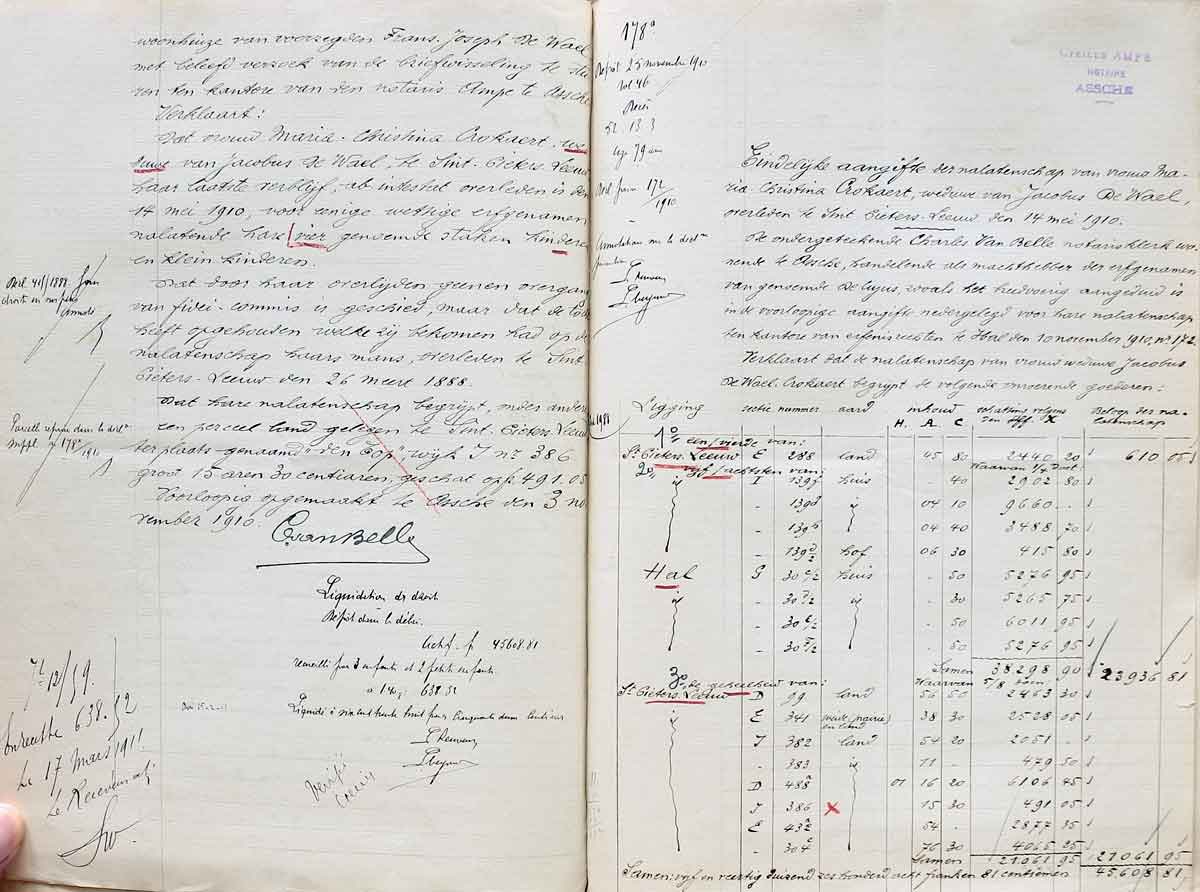 woonhuize van voorzegden Frans. Joseph De Wael
met beleefd verzoek van de briefwisseling te stu
ren ten kantore van den notaris Ampe te Assche
Verklaart:
Dat vrouw Maria-Christina Crokaert, we
duwe van Jacobus De Wael, te Sint-Pieters-Leeuw
haar laatste verblijf, ab intestat overleden is den
14 mei 1910, voor eenige wettige erfgenamen
nalatende hare vier genoemde staken kinderen
en klein kinderen.
Dat door haar overlijden geenen overgang
van fidei-commis is geschied, maar dat de
heeft opgehouden welke zij bekomen had op de
nalatenschap haars mans, overleden te Sint
Pieters-Leeuw den 26 meert 1888.
Dat hare nalatenschap begrijpt, onder andere
een perceel land gelegen te Sint-Pieters-Leeuw
ter plaats genaamd "den Cop" wijk I nr 386
groot 15 aren 30 centiaren, geschat op fr 491.05
Voorloopig opgemaakt te Assche den 3 no
vember 1910.
C. van Belle
Liquidation de droit
Dépôt dans le délai.
Actif. f. 45608.81
recueilli par 3 enfants et 2 petits enfants
à 1.40%: 638.52
Liquidé à six cent trente huit francs cinquante deux centimes
Vérifié
droits en
Parcelle reprise dans la décl.
suppl. n° 178ª/910
12/59.
En recette 638.52
Le 17 Mars 1911
Le Receveur
178ª
Dépôt 25 novembre 1910
vol 46
Reçu
52. 133
Décl 172/1910
Annotations sur la décl.
CYRILLE AMPE
NOTAIRE
ASSCHE
Eindelijke aangifte der nalatenschap van vrouw Ma-
ria Christina Crokaert, weduwe van Jacobus De Wael,
overleden te Sint Pieters-Leeuw den 14 mei 1910.
De ondergeteekende Charles Van Belle notarisklerk wo-
nende te Assche, handelende als machthebber der erfgenamen
van genoemde De Cujus, zooals het hudvoerig aangeduid is
in de voorloopige aangifte nedergelegd voor hare nalatenschap
ten kantore van erfenisrechten te Hal den 10 november 1910, nr 172
Verklaart dat de nalatenschap van vrouw weduwe Jacobus
De Wael-Crokaert begrijpt de volgende onroerende goederen:
Ligging sectie nummer aard inhoud schatting volgens Beloop der na-
H. A C latenschap
1° een/vierde van:
St Pieters Leeuw E 288 land 45 80 2440 20 610 05
Waarvan 1/4 Doet
2° vijf/achtsten van:
id I 139 huis - 40 2902 80
- 139 id 04 10 9660 -
- 139 04 40 3488 20
- 139 hof 06 30 415 80
Hal G 30 huis - 50 5276 95
id - 30 id - 30 5265 75
- 30 - 50 6011 95
- 30 - 50 5276 95
Samen 38298 90 23936 81
Waarvan 5/8
3° de geheelheid van:
St Pieters Leeuw D 99 land 56 50 2463 30
id E 341 weide (prairie) en land 38 30 2528 05
I 382 land 54 20 2051 -
- 383 id 11 - 479 50
D 488 01 16 20 6106 45
I 386 x 15 30 491 05
E 43 54 - 2877 35
304 76 30 4065 25
Samen 21061 95 21061 95
Samen: vijf en veertig duizend zes honderd acht franken 81 centiemen 45608 81